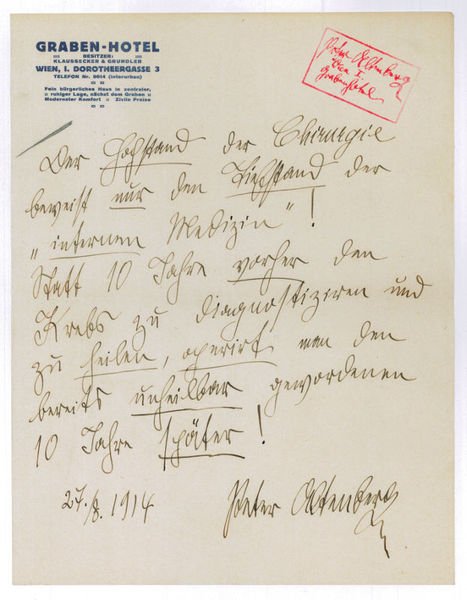 GRABEN-HOTEL
BESITZER:
KLAUSSECKER & GRUNDLER
WIEN, I. DOROTHEERGASSE 3
TELEFON Nr. 9614 (interurban)
Fein bürgerliches Haus in zentraler,
ruhiger Lage, nächst dem Graben
Modernster Komfort Zivile Preise
Peter Altenberg
Wien I.
Grabenhotel
Der Hochstand der Chirurgie
beweist nur den Tiefstand der
„internen Medizin“!
Statt 10 Jahre vorher den
Krebs zu diagnostiziren und
zu heilen, operirt man den
bereits unheilbar gewordenen
10 Jahre später!
27./8. 1914 Peter Altenberg